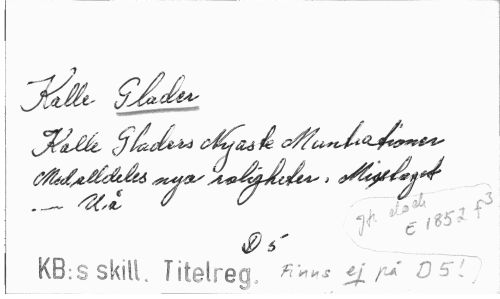 Kalle Glader
Kalle Gladers Nyaste Muntrationer
Med alldeles nya roligheter. Misstaget
— U.å
jfr dock
E 1852 f3
D 5
KB:s skill. Titelreg. Finns ej på D5!